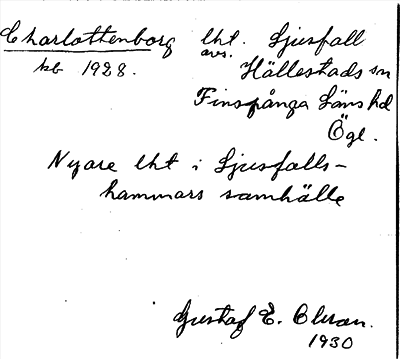 Charlottenborg lht. Ljusfall
avs.
kb 1928. Hällestads sn
Finspånga Läns hd
Ögl.
Nyare lht i Ljusfalls-
hammars samhälle
Gustaf E.
1930